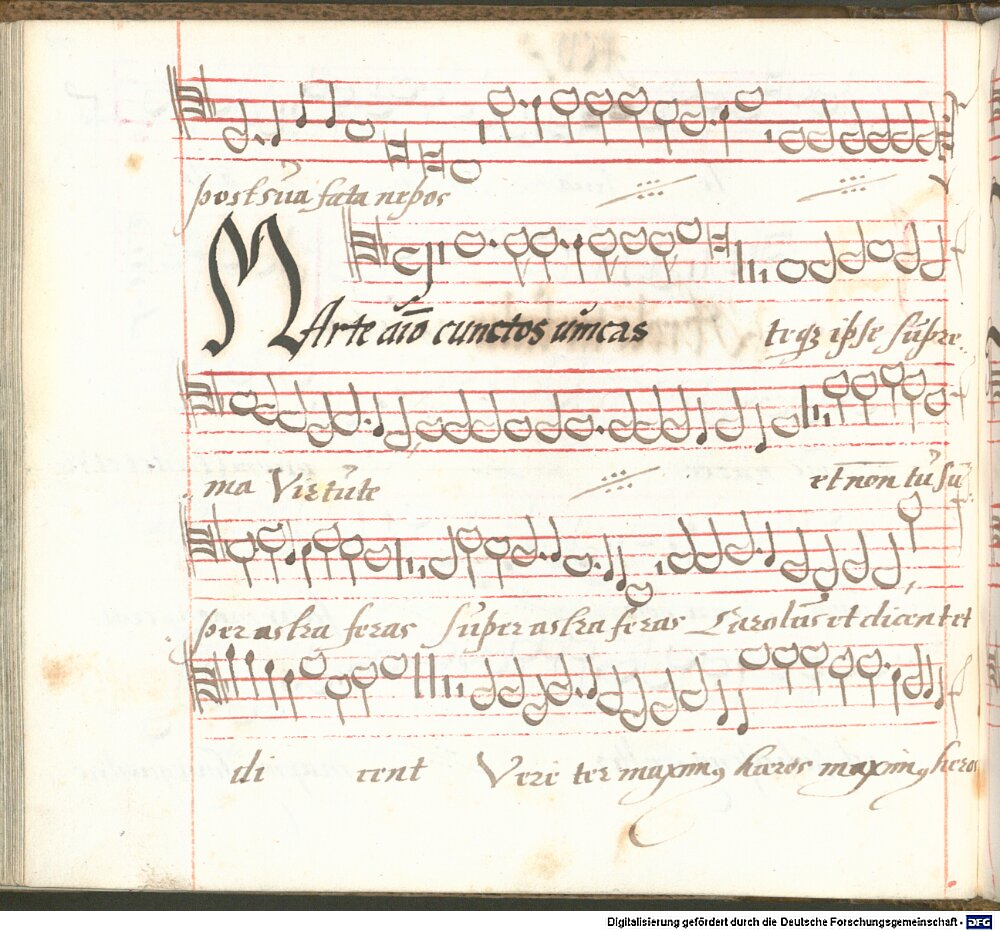 post sūa fata nepos
MArte aīo cunctos vincas teqꝫ ipse sūpre
ma Virtūte et non tū sū
per astra feras sūper astra feras Carolūs et dicent et
di cent Vere ter maximꝰ hæros maximꝰ heros
Digitalisierung gefördert durch die Deutsche Forschungsgemeinschaft - DFG